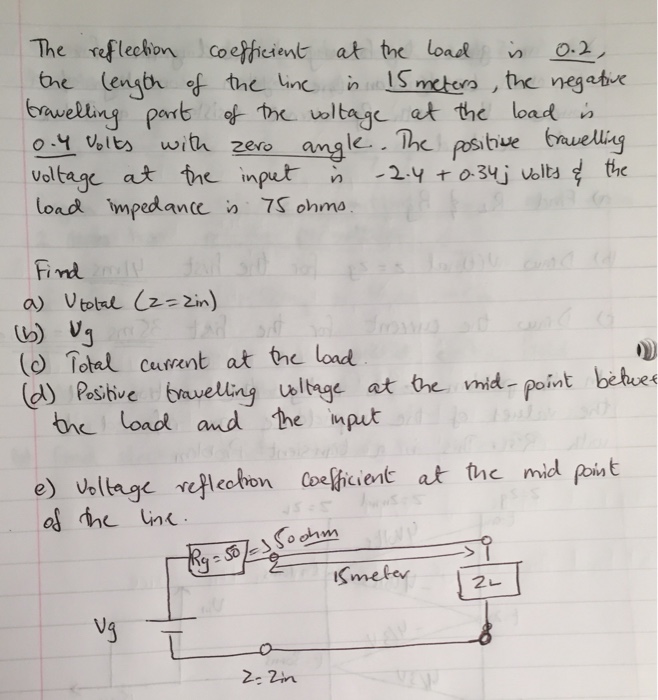 The reflection coefficient at the load is 0.2,
the length of the line is 15 meters, the negative
travelling part of the voltage at the load is
0.4 Volts with zero angle. The positive travelling
voltage at the input is -2.4 + 0.34j volts & the
load impedance is 75 ohms.
Find
a) Vtotal (z=zin)
(b) Vg
(c) Total current at the load.
(d) Positive travelling voltage at the mid-point betwee
the load and the input
e) Voltage reflection coefficient at the mid point
of the line.
Rg=50 => 50ohm
15meter
ZL
Vg
Z=Zin